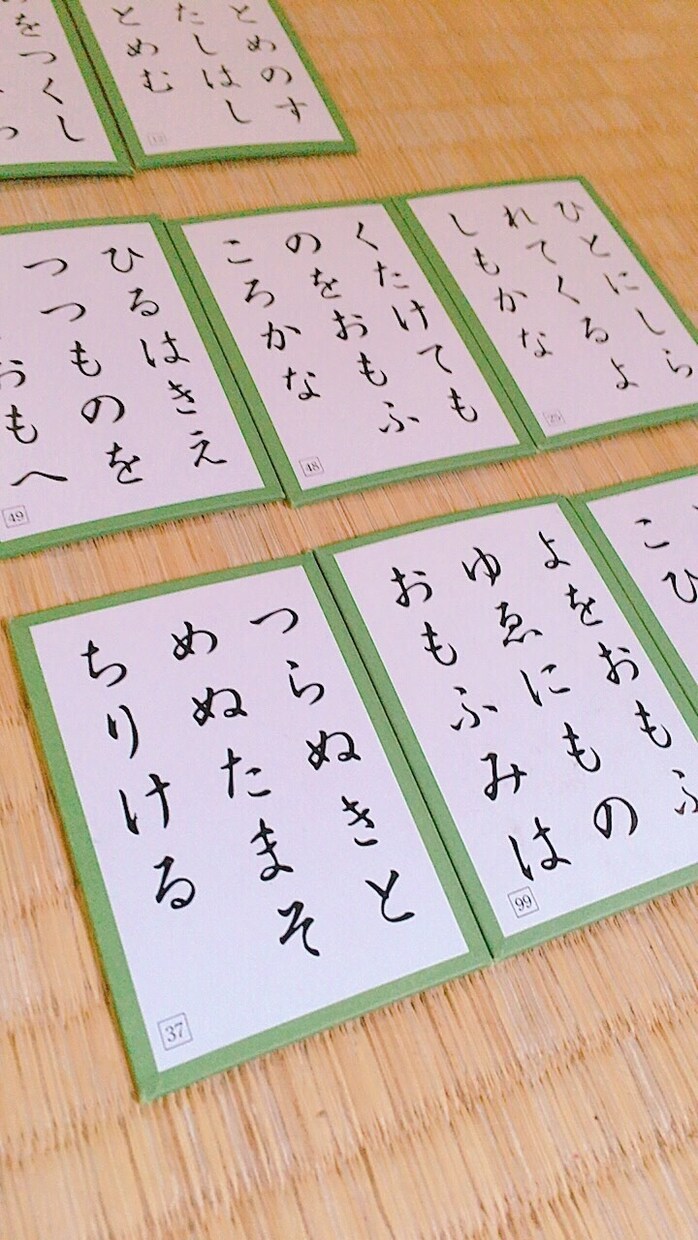 とめのす
たしはし
とめむ
をつくし
ひとにしら
れてくるよ
しもかな
25
くたけても
のをおもふ
ころかな
48
ひるはきえ
つつものを
おもへ
49
よをおもふ
ゆゑにもの
おもふみは
99
つらぬきと
めぬたまそ
ちりける
37